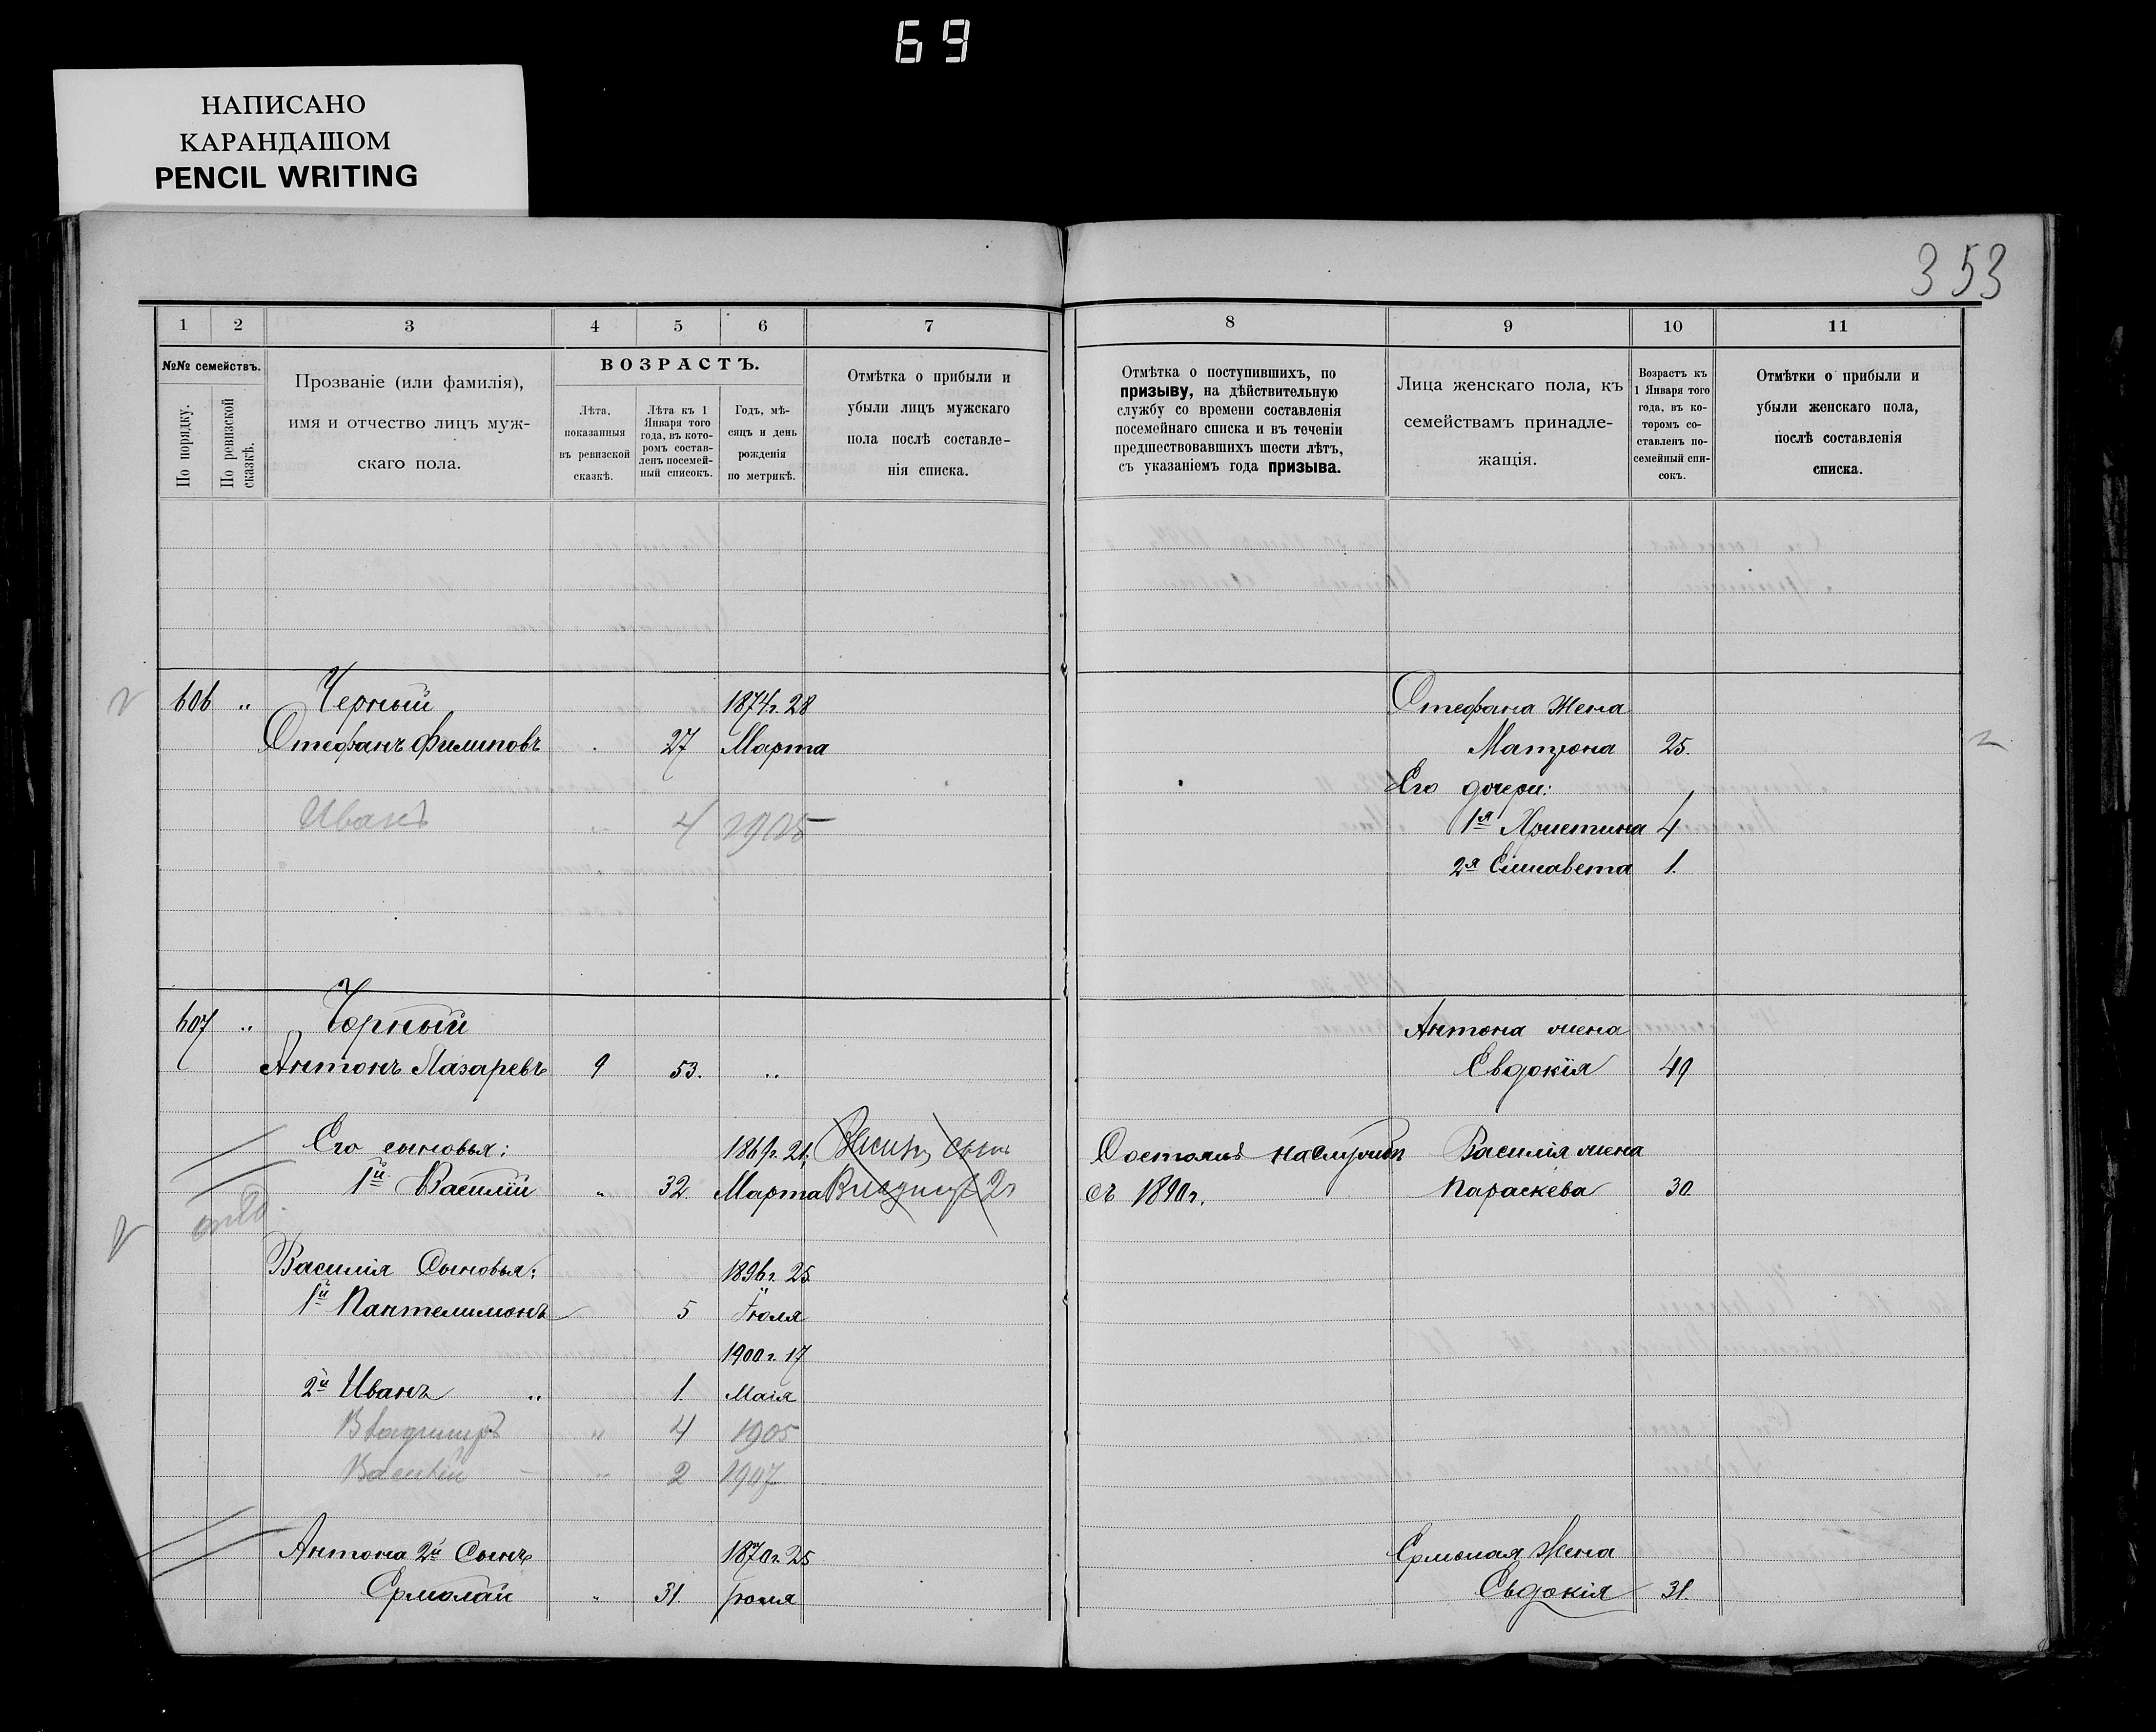 69
НАПИСАНО
КАРАНДАШОМ
PENCIL WRITING
353
1 2 3 4 5 6 7 8 9 10 11
№№ семействъ.
По порядку.
По ревизской
сказкѣ.
Прозваніе (или фамилія),
имя и отчество лицъ муж-
скаго пола.
ВОЗРАСТЪ.
Лѣта,
показанныя
въ ревизской
сказкѣ.
Лѣта къ 1
Января того
года, въ кото-
ромъ состав-
ленъ посемей-
ный списокъ.
Годъ, мѣ-
сяцъ и день
рожденія
по метрикѣ.
Отмѣтка о прибыли и
убыли лицъ мужскаго
пола послѣ составле-
нія списка.
Отмѣтка о поступившихъ, по
призыву, на дѣйствительную
службу со времени составленія
посемейнаго списка и въ теченіи
предшествовавшихъ шести лѣтъ,
съ указаніемъ года призыва.
Лица женскаго пола, къ
семействамъ принадле-
жащія.
Возрастъ къ
1 Января того
года, въ ко-
торомъ со-
ставленъ по-
семейный спи-
сокъ.
Отмѣтки о прибыли и
убыли женскаго пола,
послѣ составленія
списка.
606 „ Черный 1874 г. 28 Стефана Жена
Стефанъ Филиповъ 27 Марта Матрона 25.
Его дочери:
Иванъ „ 4 1905 1я Христина 4
2я Елисавета 1.
607 „ Чорный Антона жена
Антонъ Лазаревъ 9 53. „ Евдокія 49
Его сыновья: 1869 г. 21. сынъ Состоялъ на службѣ Василія жена
1й Василій „ 32. Марта съ 1890 г. Параскева 30.
Василія Сыновья: 1896 г. 25
1й Пантелимонъ 5 Іюля
1900 г. 17
2й Иванъ „ 1. Маія
Владимиръ „ 4 1905
Василій „ 2 1907
Антона 2й Сынъ 1870 г. 25 Ермолая Жена
Ермолай „ 31. Іюля Евдокія 31.